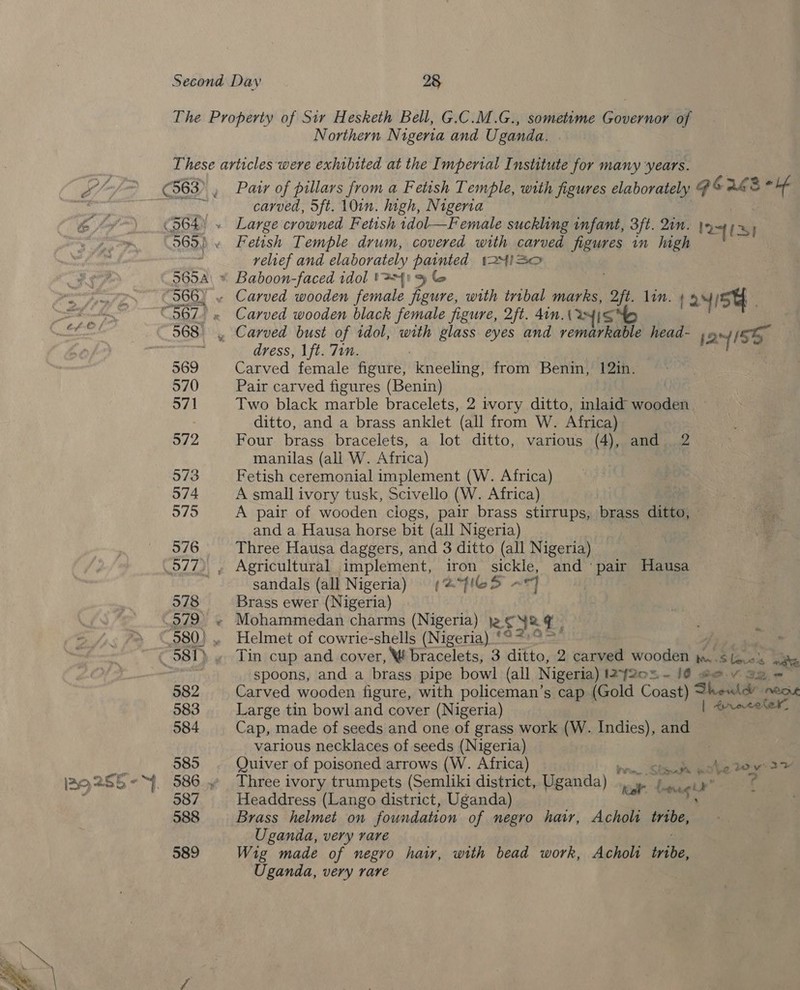 Second Day 28
The Property of Sir Hesketh Bell, G.C.M.G., sometime Governor of
Northern Nigeria and Uganda.
These articles were exhibited at the Imperial Institute for many years.
563 Pair of pillars from a Fetish Temple, with figures elaborately
carved, 5ft. 10in. high, Nigeria
564 Large crowned Fetish idol—Female suckling infant, 3ft. 2in.
565 Fetish Temple drum, covered with carved figures in high
relief and elaborately painted
565A Baboon-faced idol
566 Carved wooden female figure, with tribal marks, 2ft. 1in.
567 Carved wooden black female figure, 2ft. 4in.
568 Carved bust of idol, with glass eyes and remarkable head-
dress, 1ft. 7in.
569 Carved female figure, kneeling, from Benin, 12in.
570 Pair carved figures (Benin)
571 Two black marble bracelets, 2 ivory ditto, inlaid wooden
ditto, and a brass anklet (all from W. Africa)
572 Four brass bracelets, a lot ditto, various (4), and 2
manilas (all W. Africa)
573 Fetish ceremonial implement (W. Africa)
574 A small ivory tusk, Scivello (W. Africa)
575 A pair of wooden clogs, pair brass stirrups, brass ditto,
and a Hausa horse bit (all Nigeria)
576 Three Hausa daggers, and 3 ditto (all Nigeria)
577 Agricultural implement, iron sickle, and pair Hausa
sandals (all Nigeria)
578 Brass ewer (Nigeria)
579 Mohammedan charms (Nigeria)
580 Helmet of cowrie-shells (Nigeria)
581 Tin cup and cover, bracelets, 3 ditto, 2 carved wooden
spoons, and a brass pipe bowl (all Nigeria)
582 Carved wooden figure, with policeman's cap (Gold Coast)
583 Large tin bowl and cover (Nigeria)
584 Cap, made of seeds and one of grass work (W. Indies), and
various necklaces of seeds (Nigeria)
585 Quiver of poisoned arrows (W. Africa)
586 Three ivory trumpets (Semliki district, Uganda)
587 Headdress (Lango district, Uganda)
588 Brass helmet on foundation of negro hair, Acholi tribe,
Uganda, very rare
589 Wig made of negro hair, with bead work, Acholi tribe,
Uganda, very rare